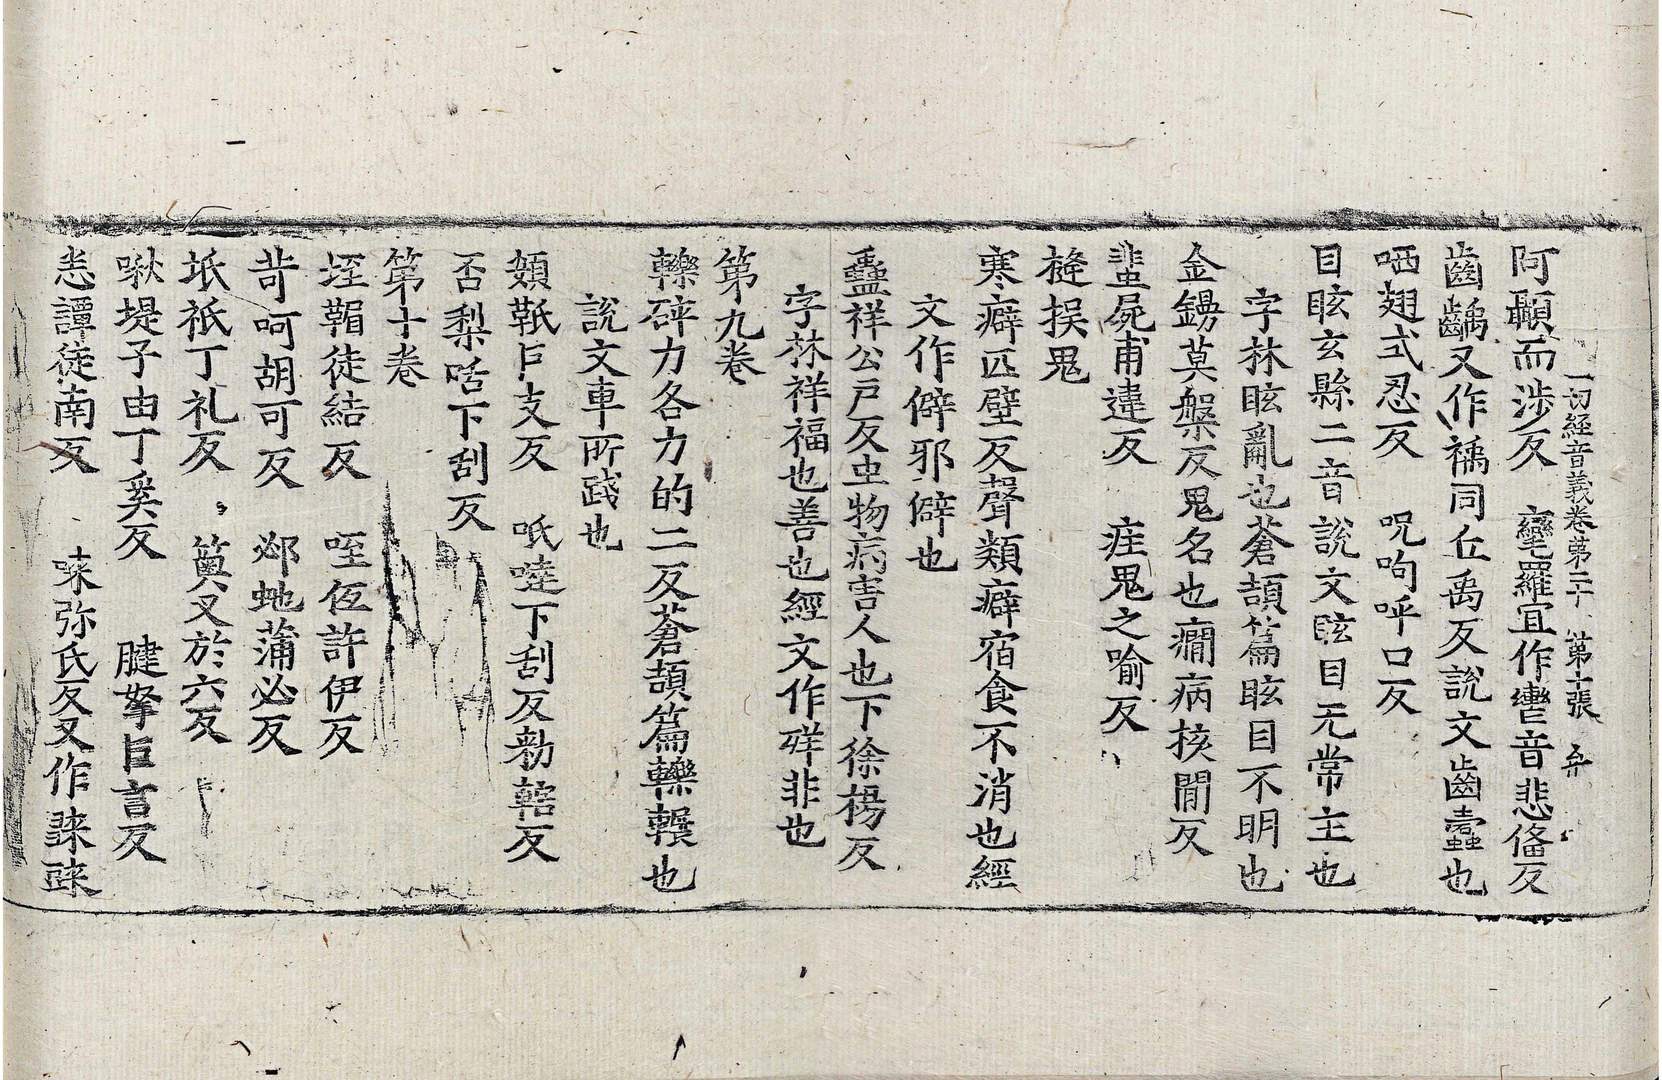 一切經音義卷第二十 第十張 弁
阿顳而涉反 𤣎羅宜作轡音悲俻反
齒齲又作𧝔同丘禹反說文齒蠧也
哂翅式忍反 呪呴呼口反
目眩玄縣二音說文眩目无常主也
字林眩亂也蒼頡篇眩目不明也
金鍚莫槃反鬼名也癎病核閒反
蜚屍甫違反 疰鬼之喻反
𢲛捑鬼
寒癖匹壁反聲類癖宿食不消也經
文作僻邪僻也
蠱祥公戸反虫物病害人也下徐楊反
字林祥福也善也經文作𤙤非也
第九卷
轢碎力各力的二反蒼頡篇轢輾也
說文車所踐也
頞䡋巨支反 呧噠下刮反勑鎋反
否梨咶下刮反
第十卷
垤䩉徒結反 咥𠈇許伊反
㫮呵胡可反 邲虵蒲必反
坁祇丁礼反 䉛又於六反
啾堤子由丁奚反 腱拏巨言反
恚譚徒南反 㖼弥氏反又作𧧸𧧸